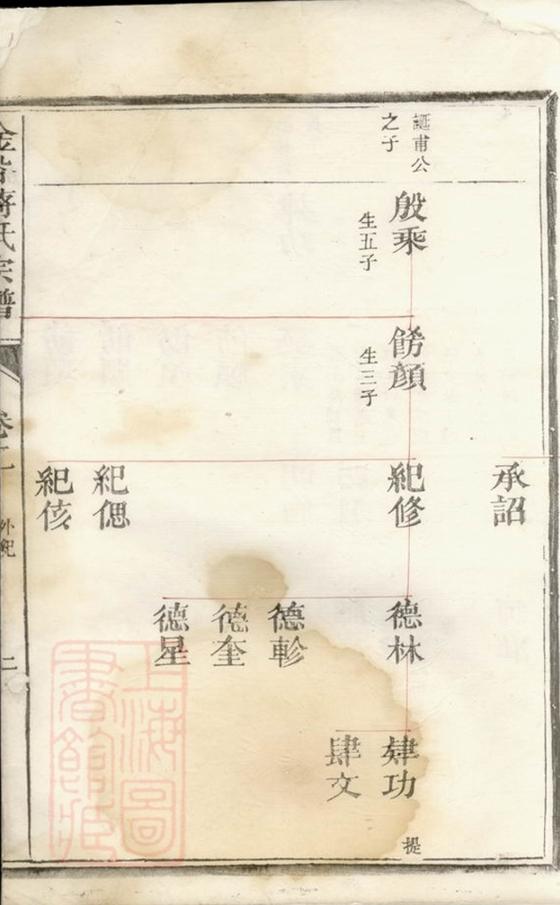 承詔
誕甫公
之子
殷乘
生五子
餝顏
生三子
紀修
紀偲
紀侅
德林
德軫
德奎
德星
肄功
肆文
提
氏宗譜
卷二
外紀
二
上海圖
書館藏